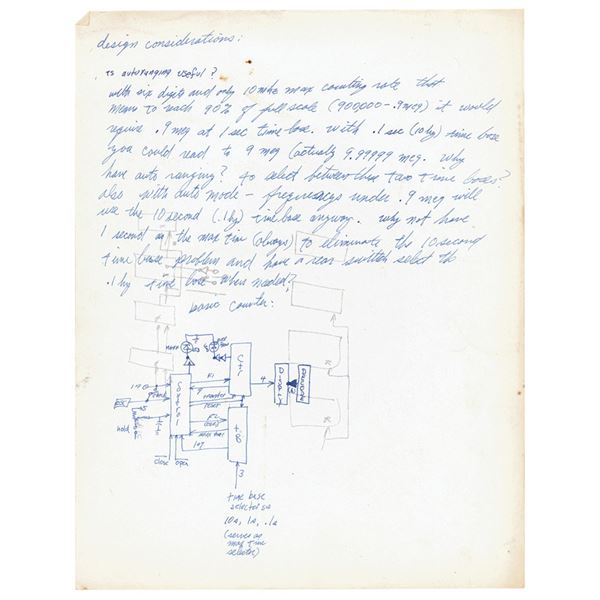 design considerations:
is autoranging useful?
with six digits and only 10 mhz max counting rate that
means to reach 90% of full scale (900000 - .9 meg) it would
require .9 meg at 1 sec time base. with .1 sec (10 hz) time base
you could read to 9 meg (actually 9.99999 meg. Why
have auto ranging? to select between these two time bases?
also with auto mode - frequencys under .9 meg will
use the 10 second (.1 hz) timebase anyway. why not have
1 second as the max time (always) to eliminate the 10 second
time base problem and have a rear switch select the
.1 hz time base when needed?
basic counter:
control
Ctr
4
F1
transfer
reset
t.B
hold
close
open
3
time base
selector sw
10s, 1s, .1s
(serves as
max time
selector)